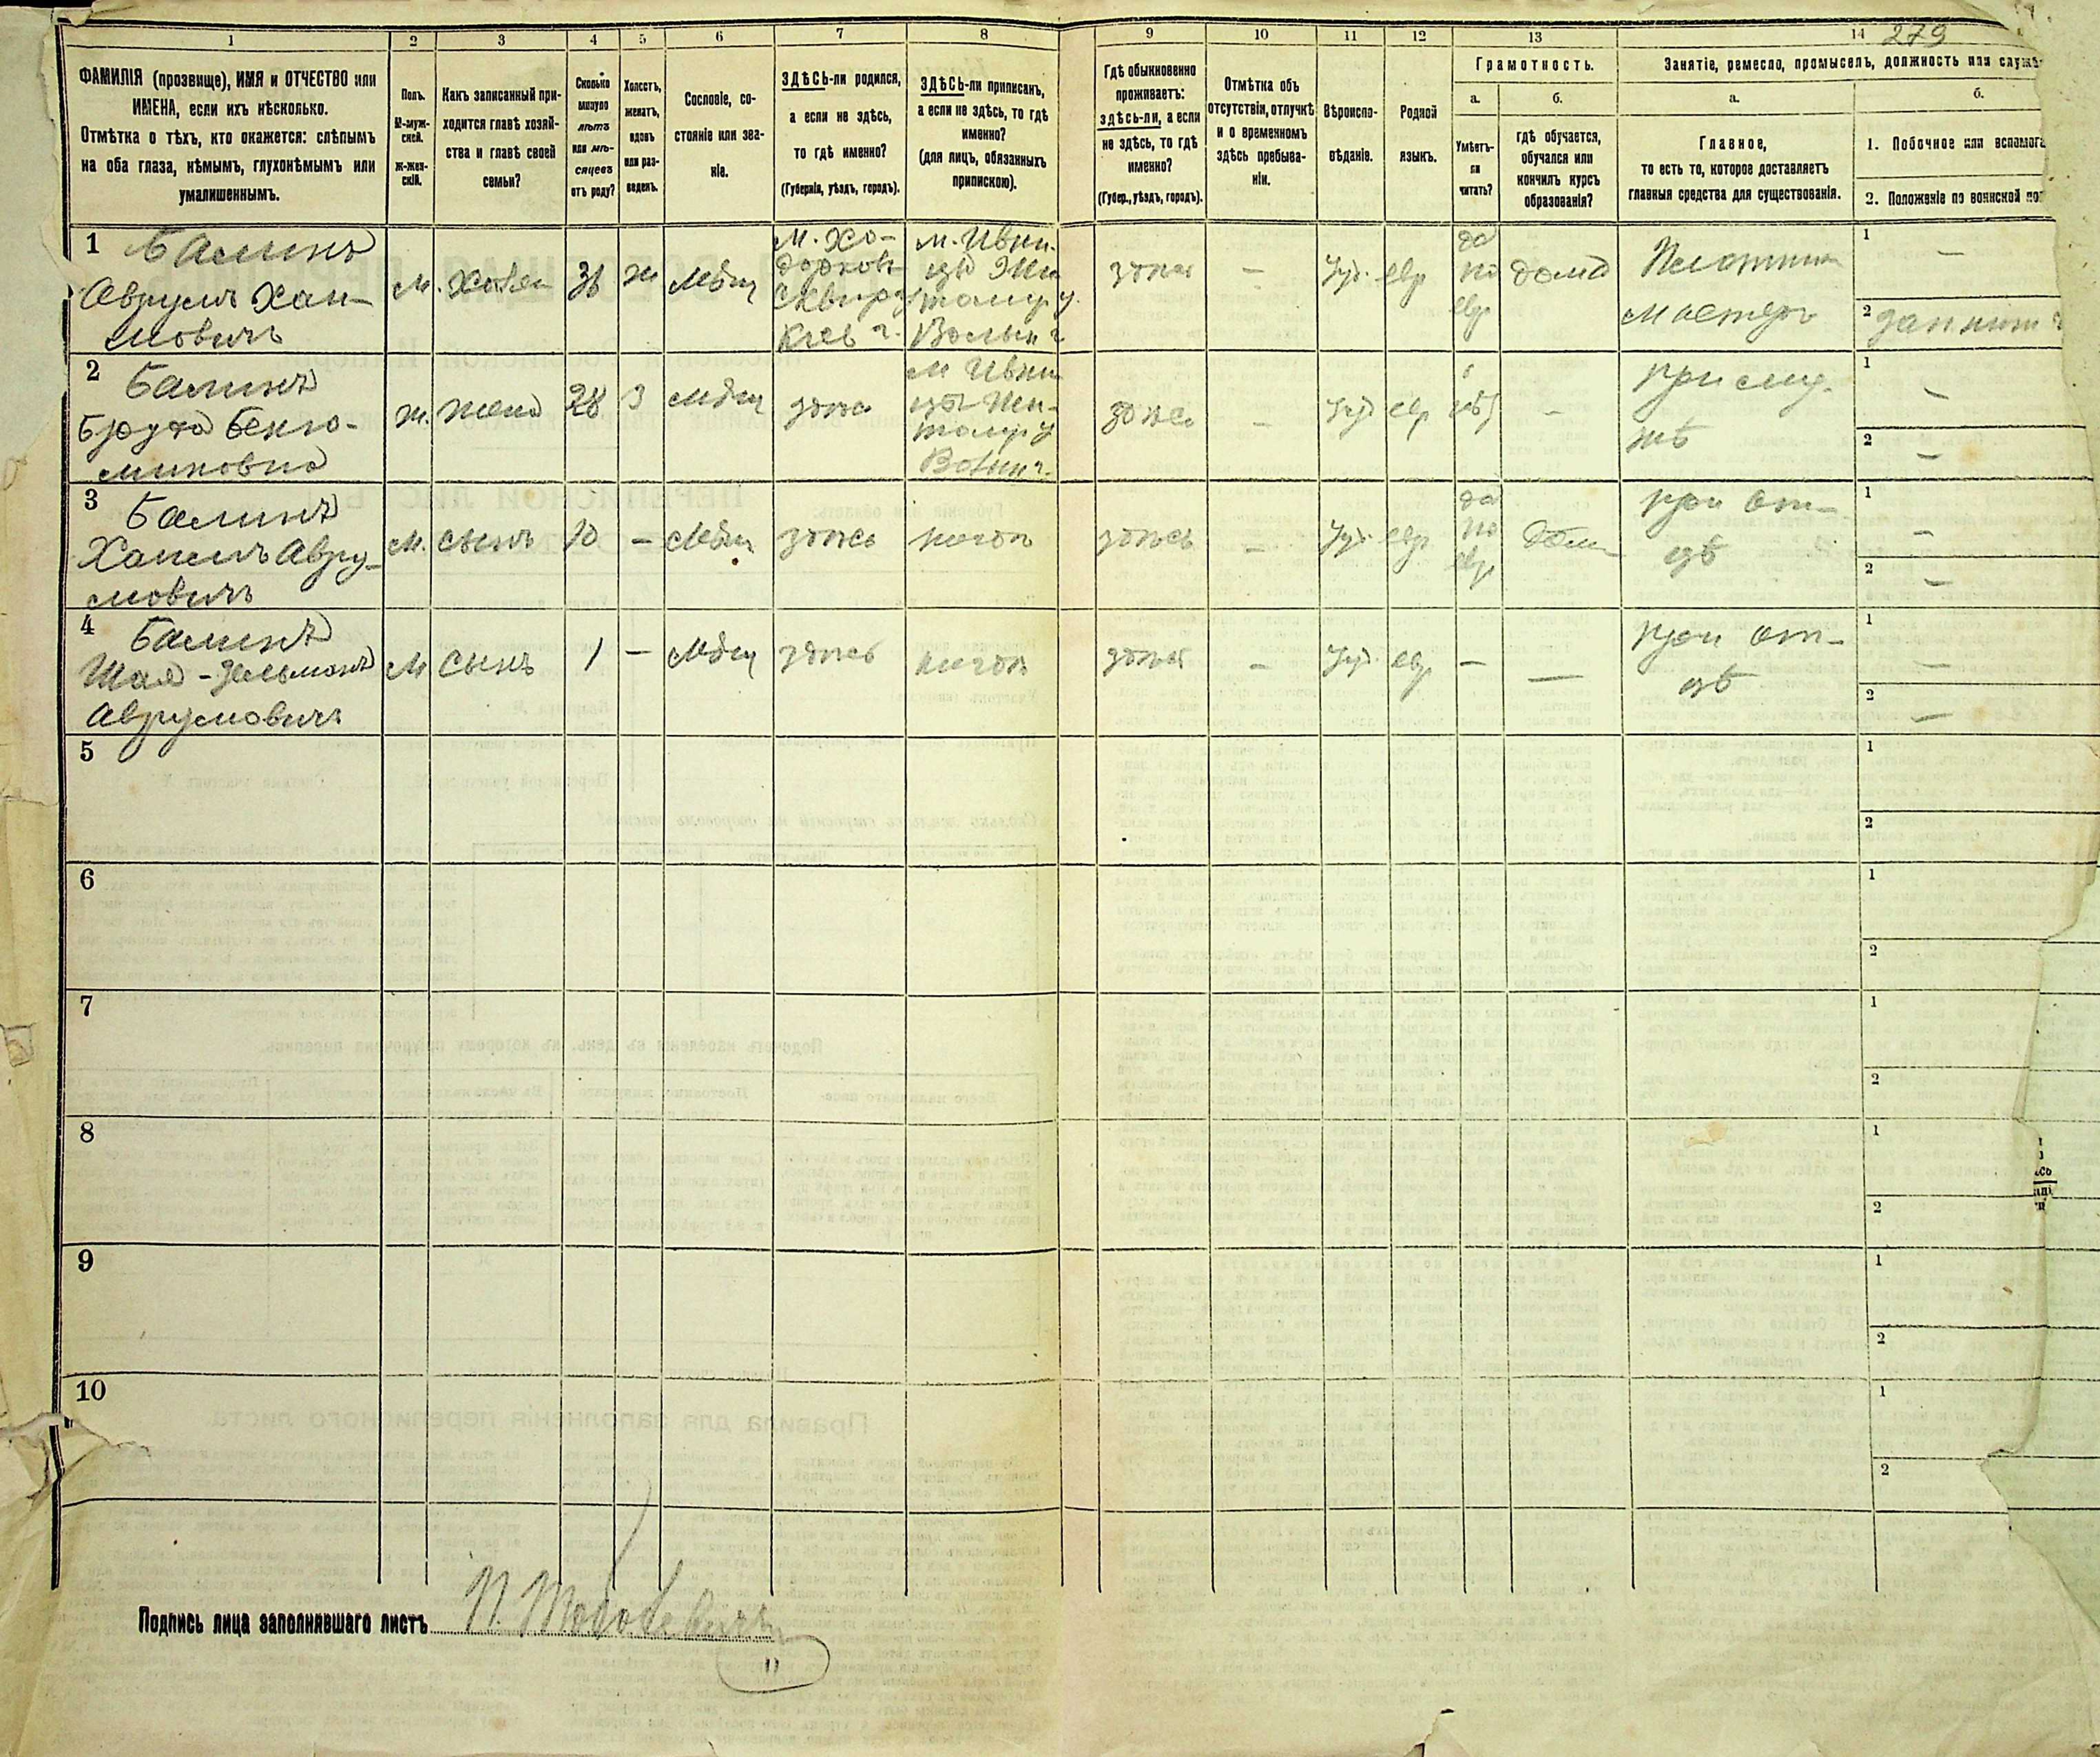 279
1
2
3
4
5
6
7
8
9
10
11
12
13
14
ФАМИЛІЯ (прозвище), ИМЯ и ОТЧЕСТВО или
ИМЕНА, если ихъ нѣсколько.
Отмѣтка о тѣхъ, кто окажется: слѣпымъ
на оба глаза, нѣмымъ, глухонѣмымъ или
умалишеннымъ.
Полъ.
М-муж-
ской.
Ж-жен-
скій.
Какъ записанный при-
ходится главѣ хозяй-
ства и главѣ своей
семьи?
Сколько
минуло
лѣтъ
или мѣ-
сяцевъ
отъ роду?
Холостъ,
женатъ,
вдовъ
или раз-
веденъ.
Сословіе, со-
стояніе или зва-
ніе.
ЗДѢСЬ-ли родился,
а если не здѣсь,
то гдѣ именно?
(Губернія, уѣздъ, городъ).
ЗДѢСЬ-ли приписанъ,
а если не здѣсь, то гдѣ
именно?
(для лицъ, обязанныхъ
припискою).
Гдѣ обыкновенно
проживаетъ:
здѣсь-ли, а если
не здѣсь, то гдѣ
именно?
(Губер., уѣздъ, городъ).
Отмѣтка объ
отсутствіи, отлучкѣ
и о временномъ
здѣсь пребыва-
ніи.
Вѣроиспо-
вѣданіе.
Родной
языкъ.
Грамотность.
а.
Умѣетъ-
ли
читать?
б.
гдѣ обучается,
обучался или
кончилъ курсъ
образованія?
Занятіе, ремесло, промыселъ, должность или служ
а.
Главное,
то есть то, которое доставляетъ
главныя средства для существованія.
б.
1. Побочное или вспомога
2. Положеніе по воинской по
1 Балинъ
Аврумъ Хаи-
мовичъ
М. Хозяи 36 ж Мѣщ
м. Хо-
дорковъ
Сквир у
Кіев г.
м. Ивни-
цы Жи
томир у.
Волын г
здѣсь – Іуд. евр
да
по
евр
дома
Плотни
мастеръ
1 –
2
2 Балинъ
Бруха Бенью-
миновна
ж. жена 28 З Мѣщ здѣсь
м Ивни
цы Жи-
томир у
Волын г.
здѣсь – Іуд евр –
при му-
жѣ
1 –
2 –
3 Балинъ
Хаимъ Авру-
мовичъ
М. сынъ 10 – Мѣщ здѣсь здѣсь – Іуд. евр
да
по
евр
дома
при от-
цѣ
1 –
2 –
4 Балинъ
Шая-Зельманъ
Аврумовичъ
М сынъ 1 – Мѣщ здѣсь здѣсь – Іуд. евр – –
при от-
цѣ
1 –
2 –
5
1
2
6
1
2
7
1
2
8
1
2
9
1
2
10
1
2
Подпись лица заполнившаго листъ